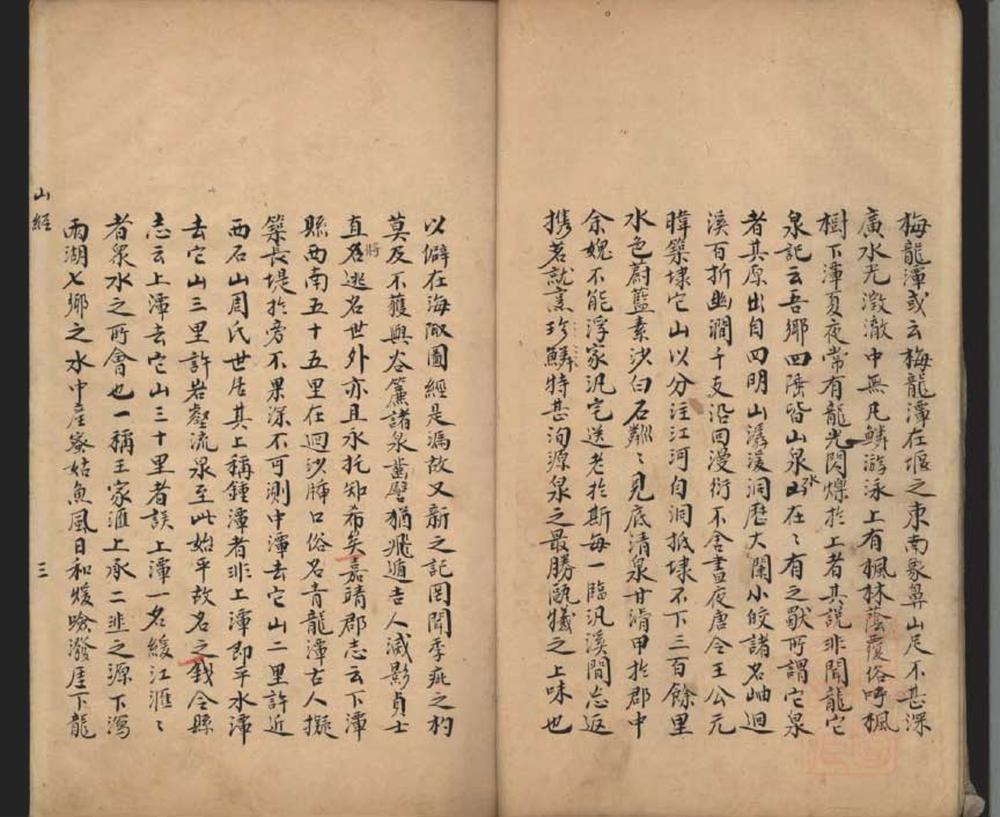 梅龍潭或云梅龍潭在堰之東南象鼻山尾不甚深
廣水尤澂澈中無凡鱗游泳上有楓林蔭覆俗呼楓
樹下潭夏夜常有龍光閃爍於上者其説非聞龍它
泉記云吾鄉四陲皆山泉水在在有之歟所謂它泉
者其原出自四明山潺湲洞歷大闌小皎諸名岫迴
溪百折幽澗千支沿囘漫衍不舍晝夜唐令王公元
暐築埭它山以分注江河自洞抵埭不下三百餘里
水色蔚藍素沙白石粼粼見底清泉甘滑甲於郡中
余媿不能浮家汎宅送老於斯每一臨汎溪間忘返
携茗就烹珍鱗特甚洵源泉之最勝甌犧之上味也
以僻在海陬圖經是漏故又新之記罔聞季疵之杓
莫及不獲與谷簾諸泉齒譬猶飛遁吉人滅影貞士
直將逃名世外亦且永托知希矣嘉靖郡志云下潭
縣西南五十五里在迴沙牐口俗名青龍潭古人擬
築長堤於旁不果深不可測中潭去它山二里許近
西石山周氏世居其上稱鍾潭者非上潭即平水潭
去它山三里許岩壑流泉至此始平故名之錢令縣
志云上潭去它山三十里者誤上潭一名緩江滙滙
者泉水之所會也一稱王家滙上承二韭之源下瀉
兩湖七鄉之水中產寮姑魚風日和煖噞潑厓下龍
山經
三